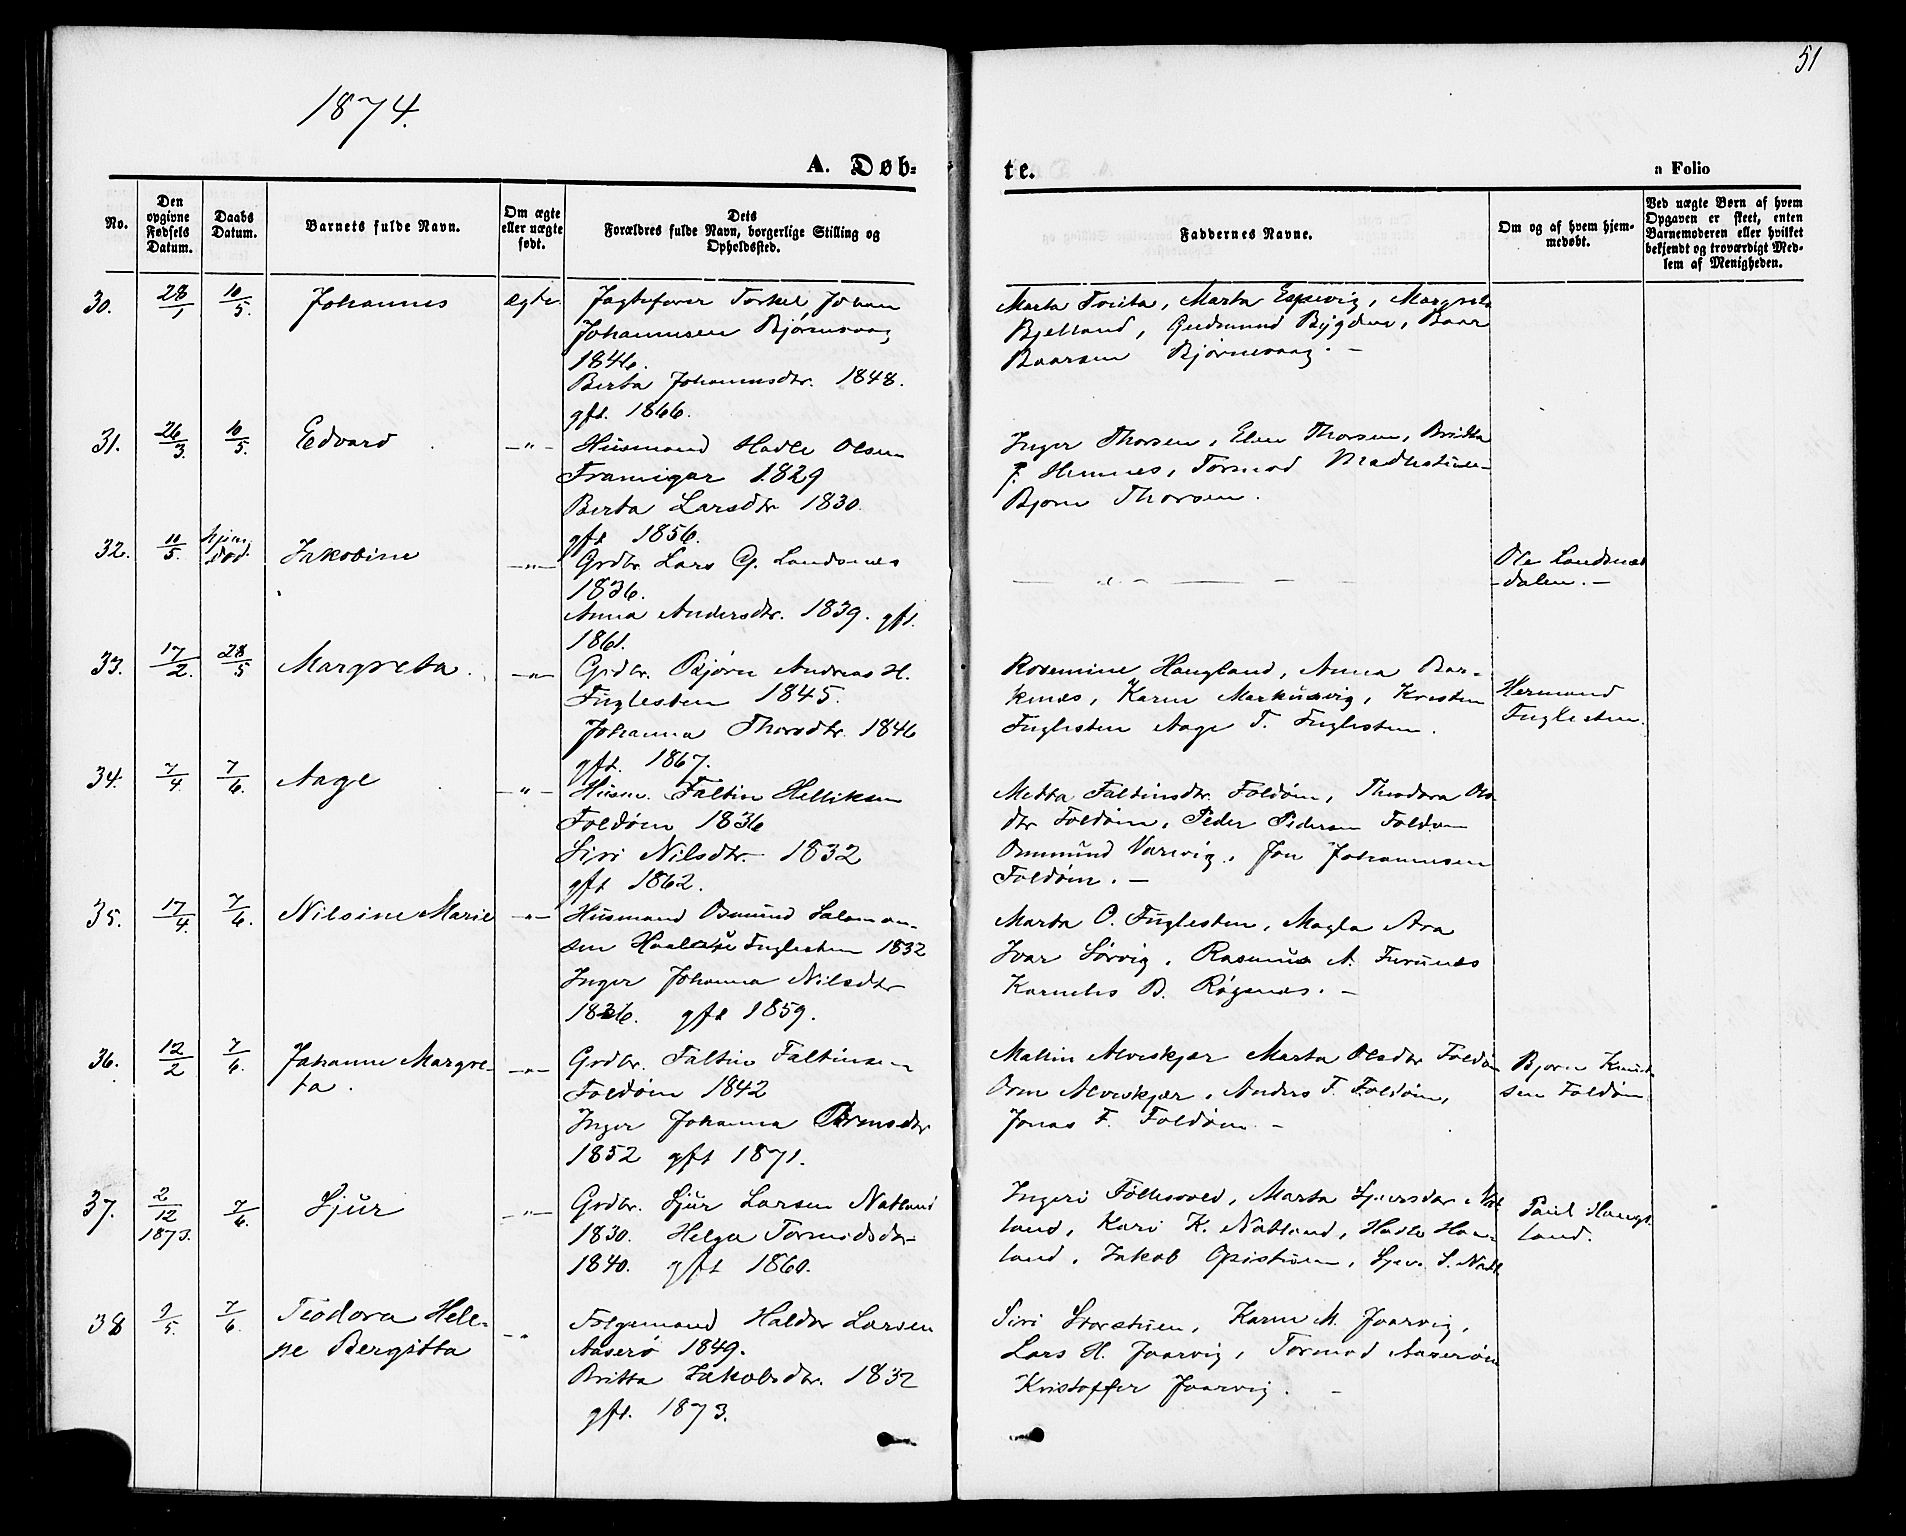 51
1874.
A. Døb-
te.
a Folio
No.
Den
opgivne
Fødsels
Datum.
Daabs
Datum.
Barnets fulde Navn.
Om ægte
eller uægte
født.
Dets
Forældres fulde Navn, borgerlige Stilling og
Opholdssted.
Faddernes Navne.
Om og af hvem hjem-
medøbt.
Ved uægte Børn af hvem
Opgaven er skeet, enten
Barnemoderen eller hvilket
bekjendt og troværdigt Med-
lem af Menigheden.
30. 28/1 10/5. Johannes ægte.
Jagtefører Torkel Johan
Johannesen Bjørnevaag
1846.
Berta Johannesdtr. 1848.
gft. 1866.
Marta Tveita, Marta Espevig, Margreta
Bjelland, Gudmund Bygdnes, Baar
Baarsen Bjørnevaag. -
31. 26/3. 10/5. Edvard -"-
Husmand Hadle Olsen
Framigar 1829
Berta Larsdtr 1830.
gft 1856.
Inger Thorsen, Elen Thorsen, Britta
Hennes, Tormod
Bjørn Thorsen.
32. 11/5. hjem
død. Jakobine -"-
Grdbr. Lars G. Landsnes
1836.
Anna Andersdtr. 1839. gft.
1861.
Ole Landsnes
dalen. -
33. 17/2. 28/5 Margreta. -"-
Grdbr. Bjørn Andreas H.
Fuglesten 1845.
Johanna Thorsdtr. 1846
gft. 1867.
Rosemine Haugland, Anna Bar-
kenes, Karen Markusvig, Kristen
Fuglesten Aage T. Fuglesten.
Hermand
Fuglesten.
34. 7/4. 7/6. Aage -"-
Husm. Faltin Helliksen
Foldøen 1836
Siri Nilsdtr. 1832
gft 1862.
Metta Faltinsdtr. Foldøen, Theodora Ols
dtr Foldøen, Peder Pedersen Foldøen
Ommund Varvig, Jon Johannesen
Foldøen. -
35. 17/4. 7/6. Nilsine Marie -"-
Husmand Osmund Salamon-
sen Fuglesten 1832
Inger Johanna Nilsdtr
1836. gft 1859.
Marta O. Fuglesten, Magla Ara
Ivar Sørvig, Rasmus A. Furunes
Kornelis B. Røgenes. -
36. 12/2 7/6. Johanne Margre-
ta. -"-
Grdbr. Faltin Faltinsen
Foldøen 1842
Inger Johanna Ormsdtr
1852 gft 1871.
Malsin Alveskjær Marta Olsdtr Foldøen
Orm Alveskjær, Anders F. Foldøen,
Jonas F. Foldøen. -
Bjørn Knud-
sen Foldøen
37. 2/12
1873. 7/6. Sjur -"-
Grdbr. Sjur Larsen Natland
1830. Helga Tormodsdtr
1840. gft 1860.
Ingeri Følkesvold, Marta Sjursdtr Nat-
land, Kari K. Natland, Hadle Hau-
land, Jakob Opistuen, Sjur S. Natl
Paul Haug-
land.
38 9/5. 7/6. Teodora Hele-
ne Bergitta -"
Folgemand Haldor Larsen
Aaserø 1849.
Britta Jakobsdtr. 1832
gft. 1873.
Siri Storstuen, Karen M. Jaarvig,
Lars H. Jaarvig, Tormod Aaserøen
Kristoffer Jaarvig. -